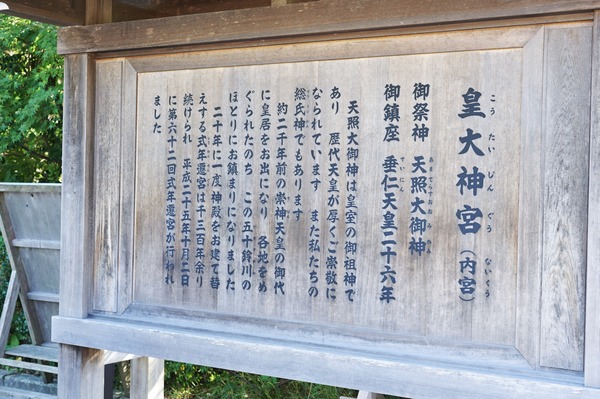 皇大神宮（内宮）
こう たい じん ぐう ないくう
御祭神 天照大御神
あまてらすおおみかみ
御鎮座 垂仁天皇二十六年
すいにん
天照大御神は皇室の御祖神で
あり 歴代天皇が厚くご崇敬に
なられています また私たちの
総氏神でもあります
約二千年前の崇神天皇の御代
に皇居をお出になり 各地をめ
ぐられたのち この五十鈴川の
ほとりにお鎮まりになりました
二十年に一度神殿をお建て替
えする式年遷宮は千三百年余り
続けられ 平成二十五年十月二日
に第六十二回式年遷宮が行われ
ました